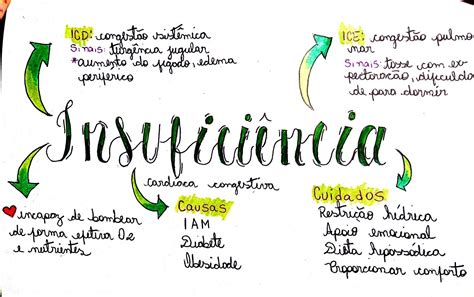 ICD: congestão sistêmica
Sinais: turgência jugular
*aumento do fígado, edema
periférico
ICE: congestão pulmo
nar
Sinais: tosse com ex-
pectoração, dificuldade
de para dormir
Insuficiência
cardíaca congestiva
incapaz de bombear
de forma efetiva O2
e nutrientes
Causas
IAM
Diabete
Obesidade
Cuidados
Restrição hídrica
Apoio emocional
Dieta hipossódica
Proporcionar conforto